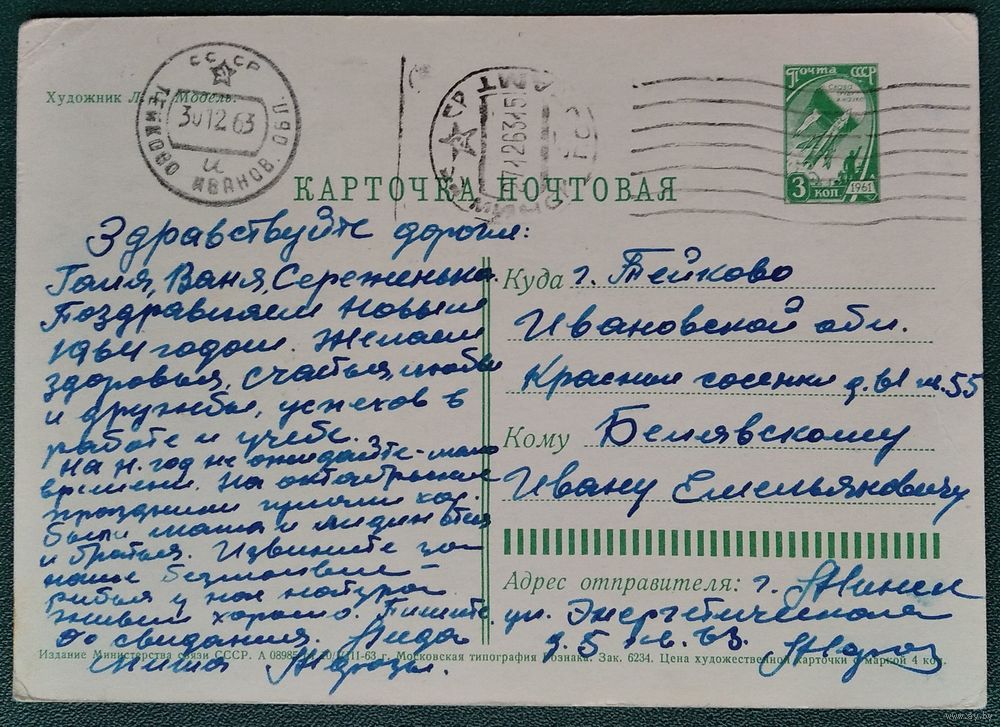 Художник Л. Модель.
СССР
ТЕЙКОВО ИВАНОВ. ОБЛ
30 12 63
и
Почта СССР
3 коп
1961
КАРТОЧКА ПОЧТОВАЯ
Здравствуйте дорогие:
Галя, Ваня, Сереженька.
Поздравляем Новым
1964 годом. Желаем
здоровья, счастья, любви
и дружбы, успехов в
работе и учебе.
на н. год не ожидайте мало
времени. На октябрьские
праздники
были Маша и Лидин
и братья. Извините за
наше
у нас
живем хорошо. Пишите.
до свидания. Лида
Миша
Куда г. Тейково
Ивановской обл.
Красные сосенки д. 61 кв. 55
Кому Белявскому
Ивану Емельяновичу
Адрес отправителя: г. Минск
ул. Энергетическая
д. 5 кв. 63.
Издание Министерства связи СССР. 63 г. Московская типография Гознака. Зак. 6234. Цена художественной карточки с маркой 4 коп.